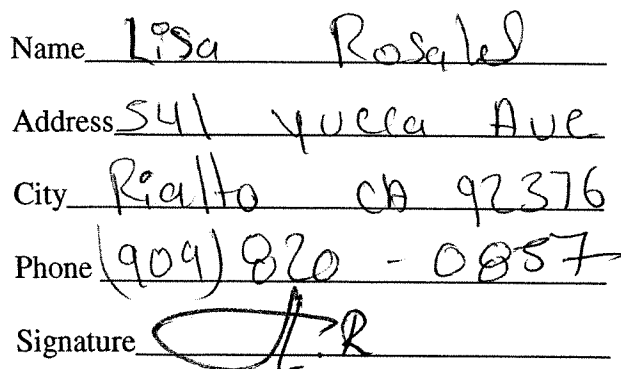 Name Lisa Rosales
Address 541 Yucca Ave
City Rialto CA 92376
Phone (909) 820 - 0857
Signature